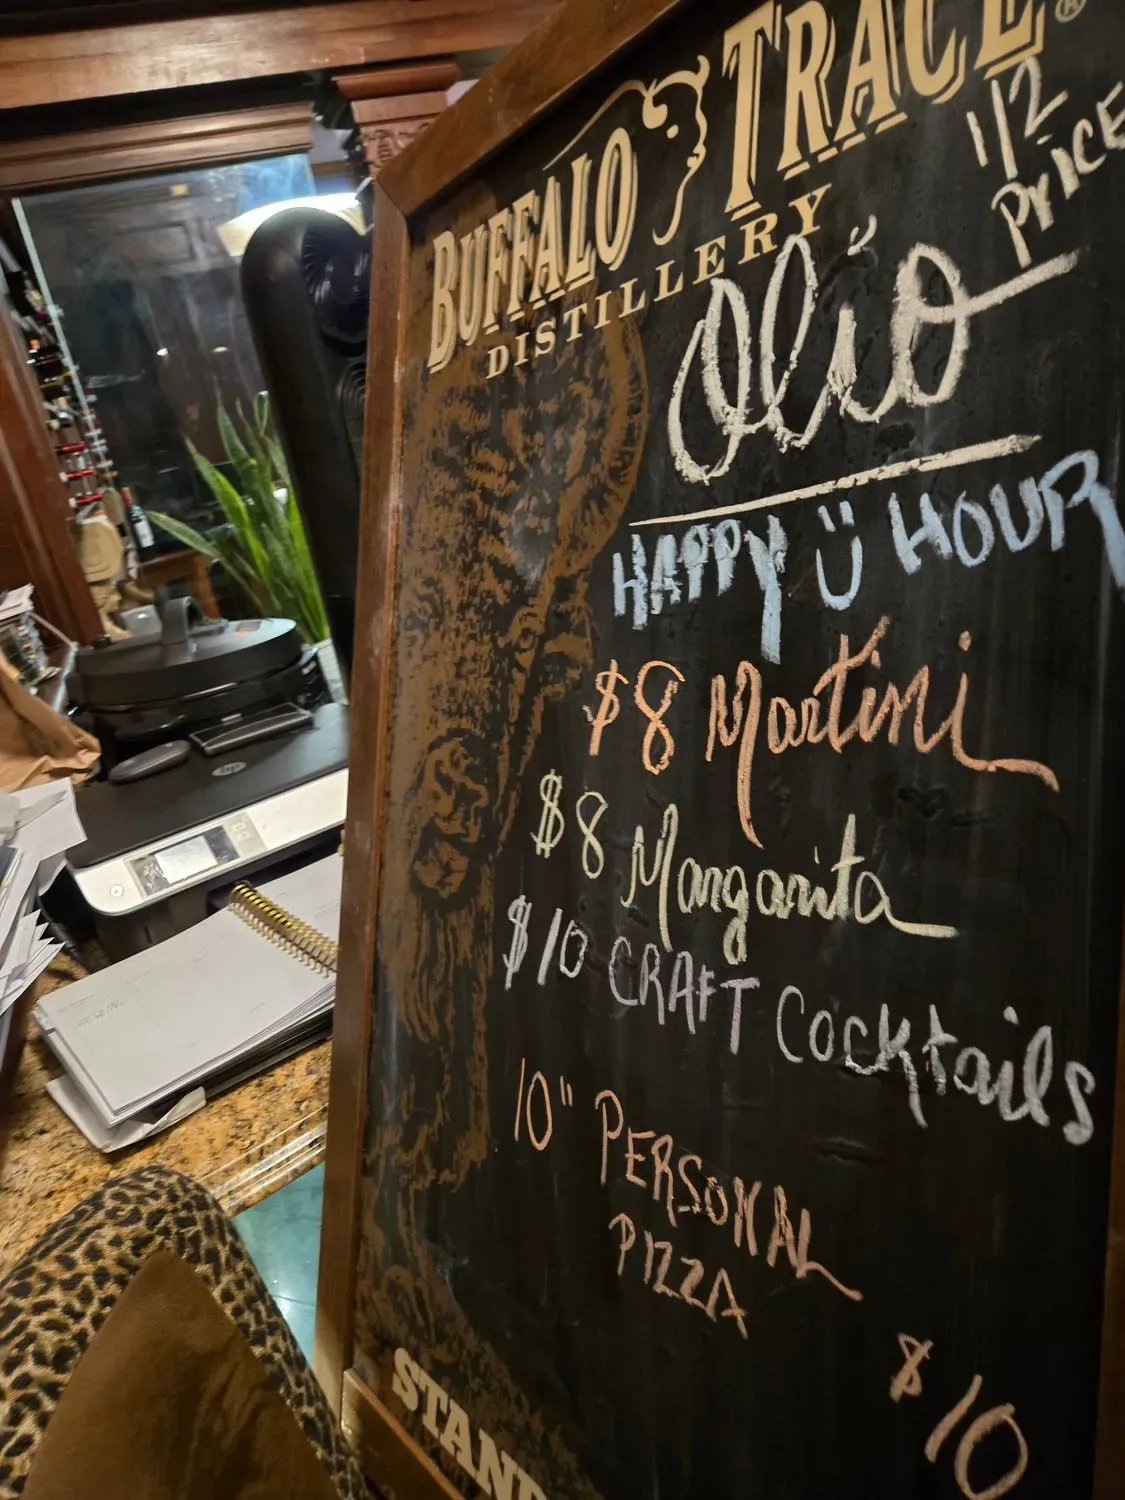 BUFFALO TRACE®
DISTILLERY
1/2
PRICE
Olio
HAPPY HOUR
$8 Martini
$8 Margarita
$10 CRAFT Cocktails
10" PERSONAL
PIZZA
$10
hp